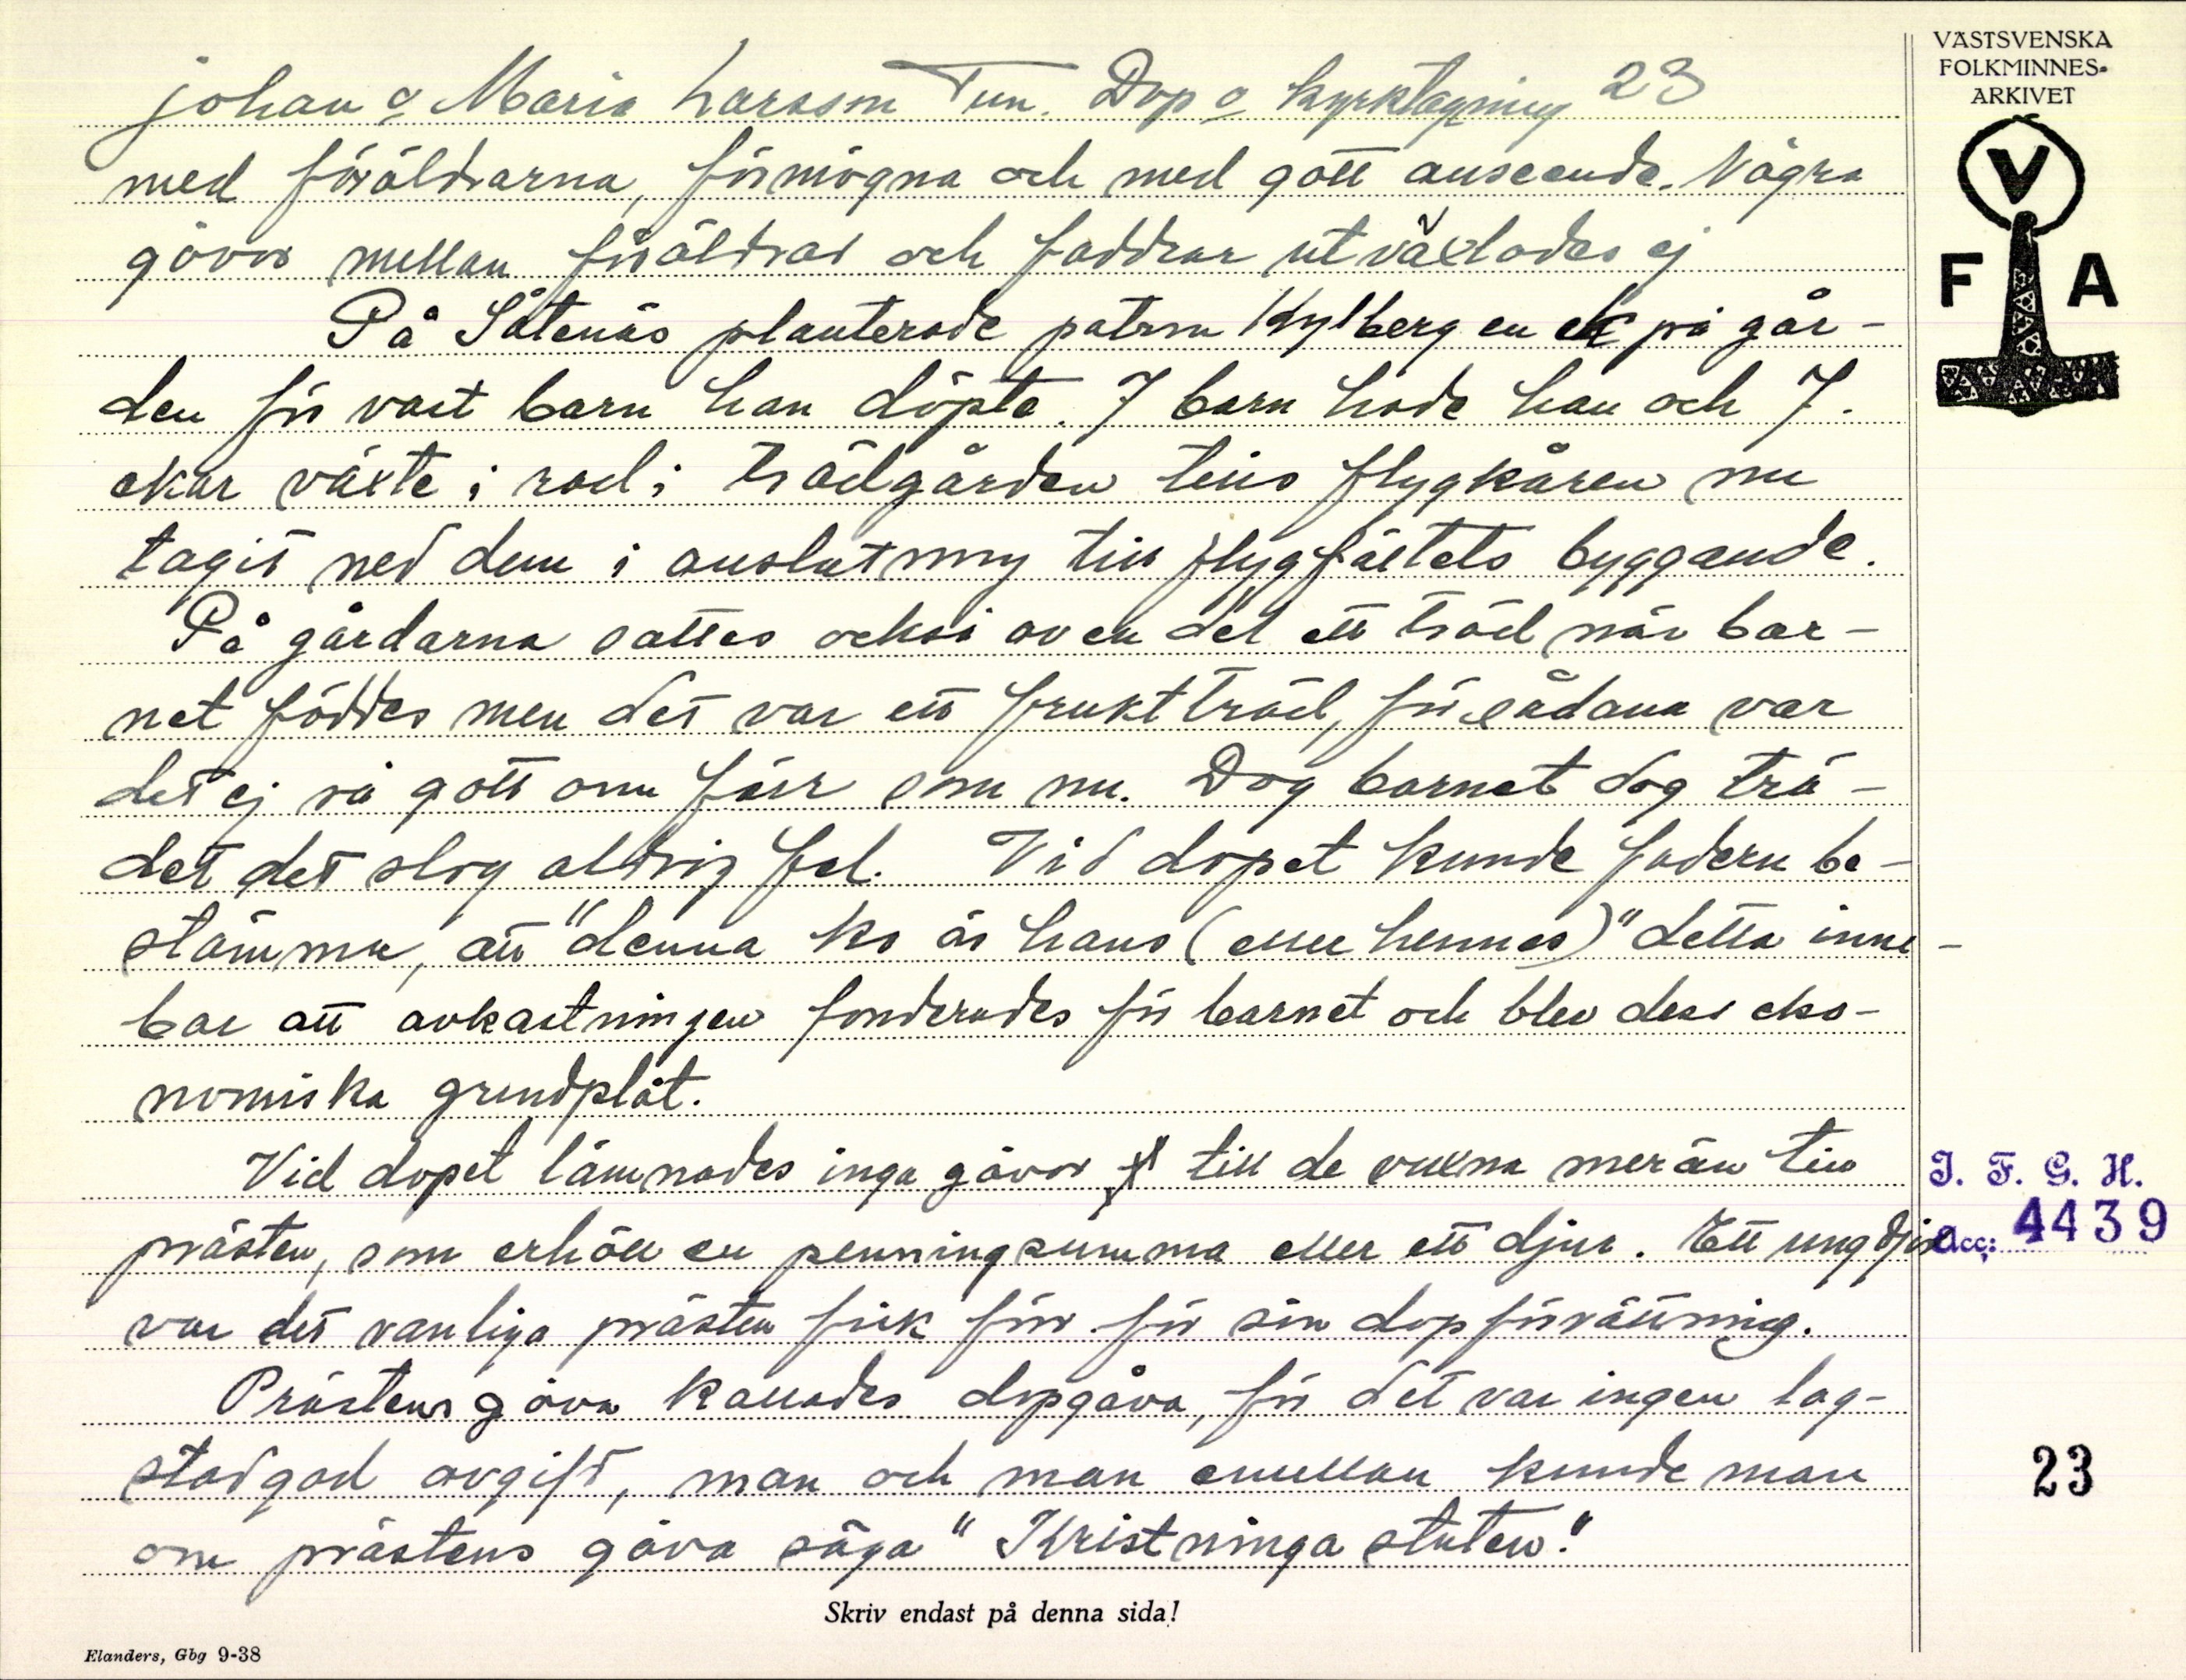 Johan o Maria Larsson Tun. Dop o kyrktagning 23
med föräldrarna, förmögna och med gott anseende. Några
gåvor mellan föräldrar och faddrar utväxlades ej
På Såtenäs planterade patron Kylberg en ek på går-
den för vart barn han döpte. 7 barn hade han och 7.
ekar växte i rad i trädgården tills flygkåren nu
tagit ned dem i anslutning till flygfältets byggande.
På gårdarna sattes också av en del ett träd när bar-
net föddes men det var ett fruktträd, för sådana var
det ej så gott om förr som nu. Dog barnet dog trä-
det det slog aldrig fel. Vid dopet kunde fadern be-
stämma, att "denna ko är hans (eller hennes)" detta inne-
bar att avkastningen fonderades för barnet och blev dess eko-
nomiska grundplåt.
Vid dopet lämnades inga gåvor till de vuxna mer än till
prästen, som erhöll en penningsumma eller ett djur. Ett ungdjur
var det vanliga prästen fick förr för sin dopförrättning.
Prästens gåva kallades dopgåva, för det var ingen lag-
stadgad avgift, man och man emellan kunde man
om prästens gåva säga "Kristninga stuten."
Skriv endast på denna sida!
Elanders, Gbg 9-38
VÄSTSVENSKA
FOLKMINNES-
ARKIVET
V
F A
I. F. G. H.
Acc: 4439
23